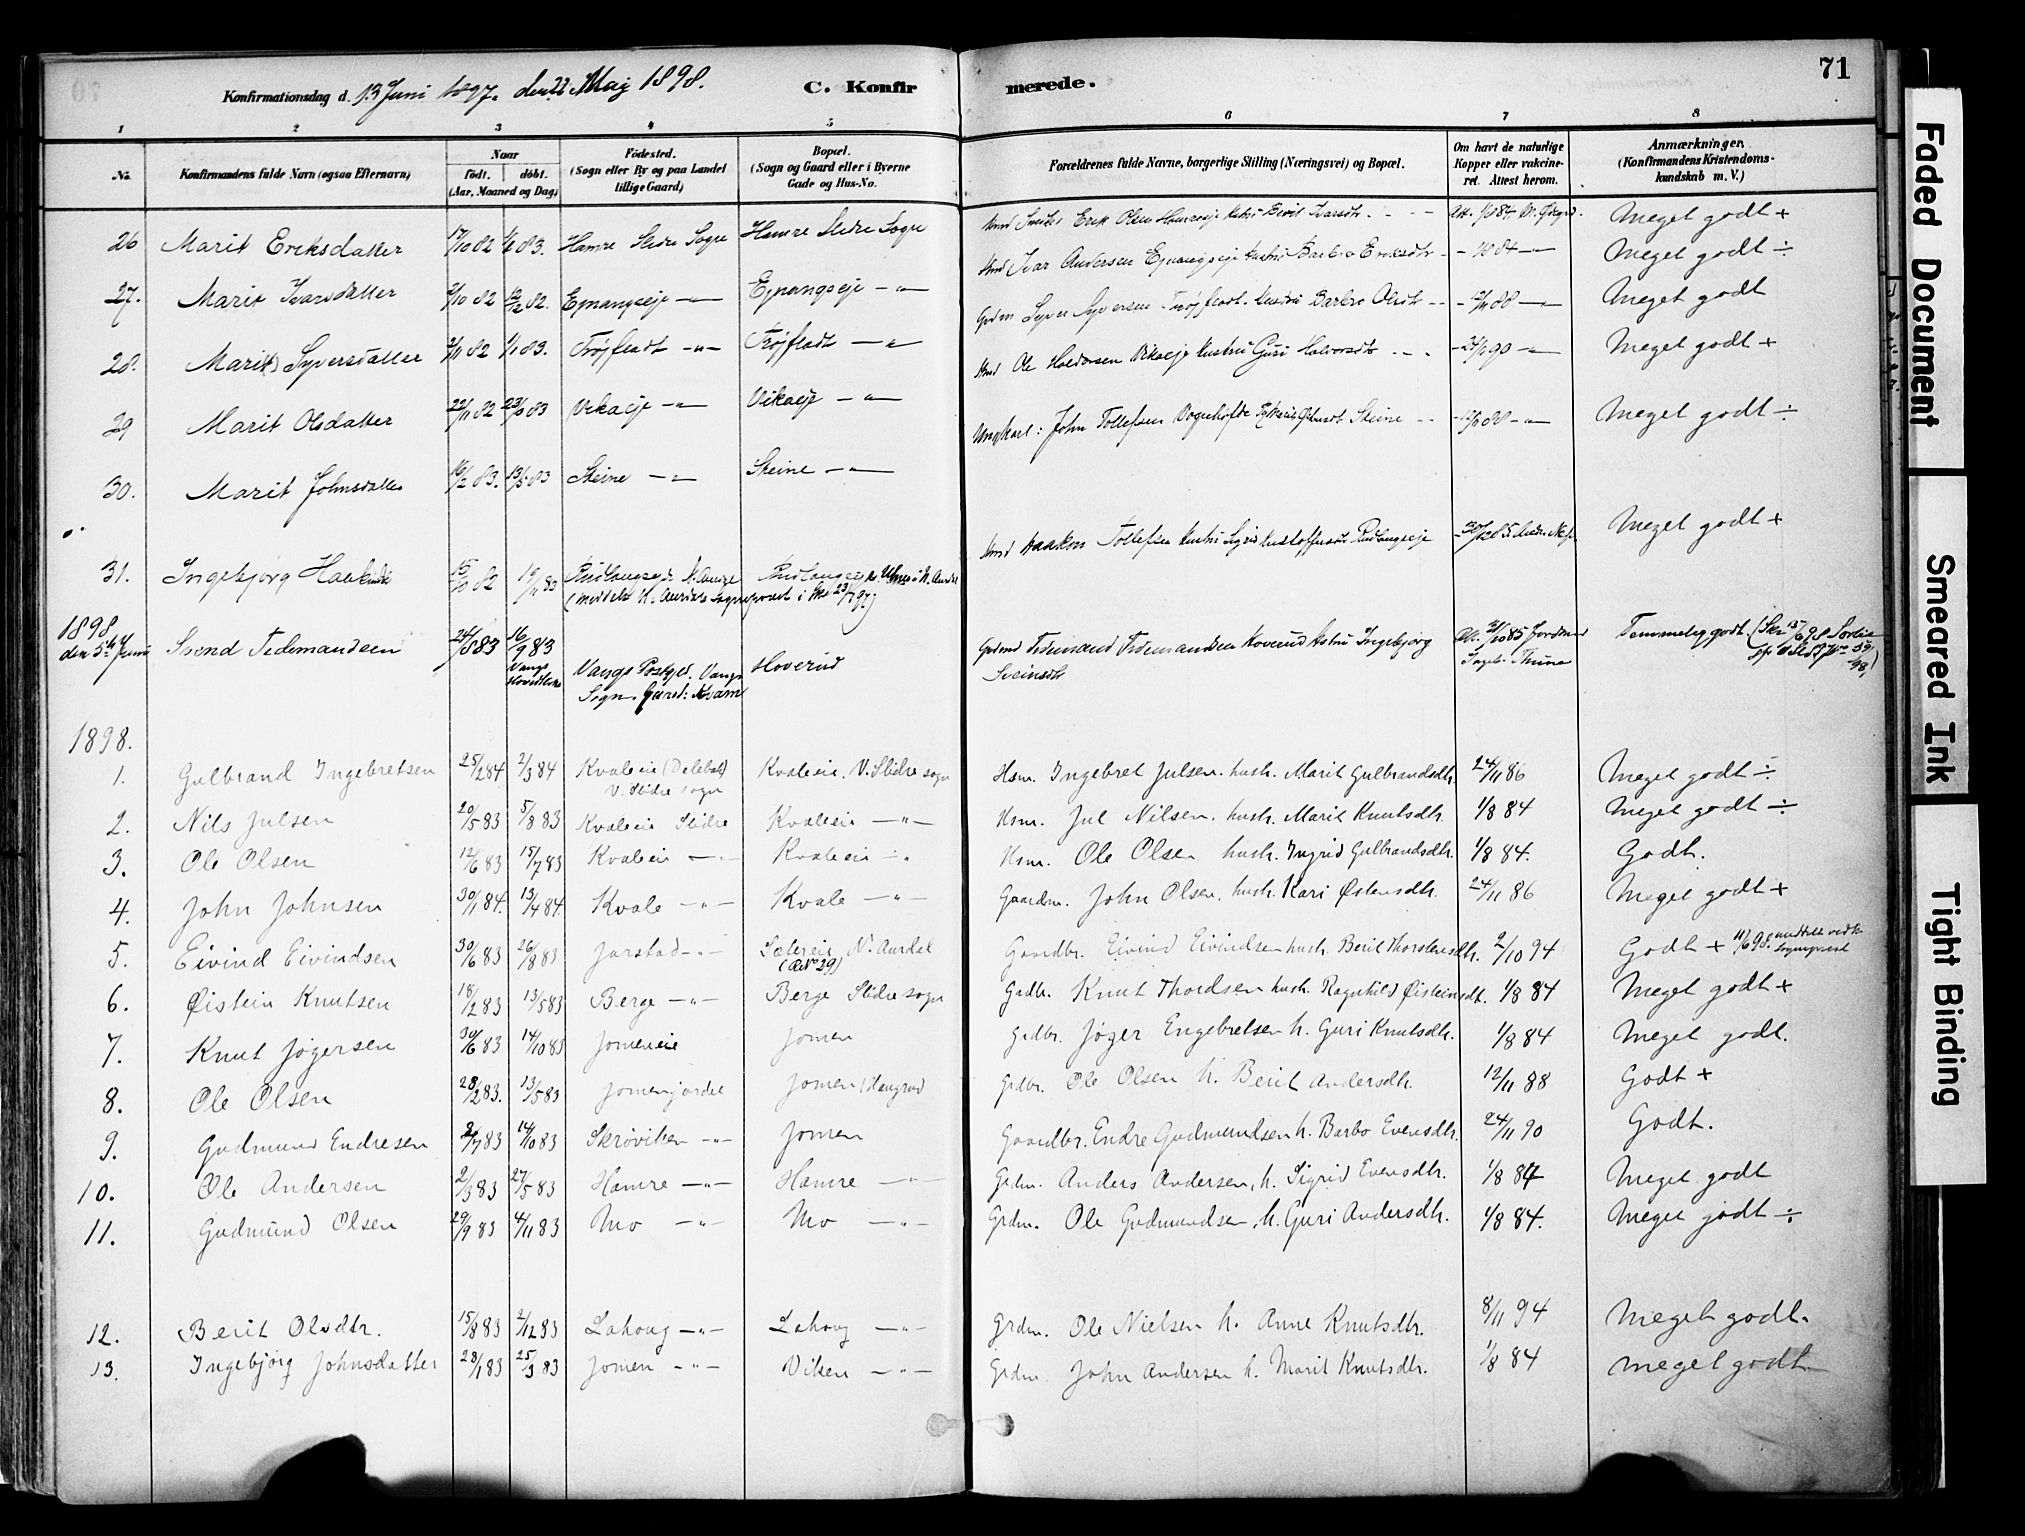 71
Konfirmationsdag d. 13 Juni 1897. den 22 Maj 1898. C. Konfirmerede.
1 2 3 4 5 6 7 8
No. Konfirmandens fulde Navn (ogsaa Efternavn) Naar født. døbt. (Aar, Maaned og Dag) Fødested. (Sogn eller By og paa Landet tillige Gaard) Bopæl. (Sogn og Gaard eller i Byerne Gade og Hus-No. Forældrenes fulde Navne, borgerlige Stilling (Næringsvei) og Bopæl. Om havt de naturlige Kopper eller vakcineret. Attest herom. Anmærkninger. (Konfirmandens Kristendomskundskab m. V.)
26 Marit Eriksdatter 17/10 82 83. Hamre Slidre Sogn Hamre Slidre Sogn Erik Olsen Hamreeje Hustru Berit Ivarsdtr. Att. 1/8 84 Meget godt +
27. Marit Ivarsdatter 2/10 82 12/12 82. Ejnangseje -"- Ejnangseje -"- Ivar Andersen Ejnangseje Hustru Barbro Eriksdtr - 1/8 84 -"- Meget godt ÷
28. Marit Syversdatter 2/11 82 1/1 83. Trøjfladt -"- Trøjfladt -"- Syver Syversen Trøjfladt. Hustru Barbro Olsdtr - 12/11 88 -"- Meget godt
29 Marit Olsdatter 22/11 82 83 Vikaeje -"- Vikaeje -"- Ole Haldorsen Vikaeje Hustru Guri Halvorsdtr - 24/11 90 -"- Meget godt +
30. Marit Johnsdatter 16/2 83. 13/5 83 Steine -"- Steine -"- Ungkarl: John Tollefsen Steine -"- Meget godt ÷
31. Ingebjørg Haakensdtr 15/10 82 19/11 83 N. Aurdal i N. Aurdal Haakon Tollefsen Hustru Sigrid Meget godt +
1898 den 5te Juni Svend Tidemandsen 24/8 83 16/9 83 Vangs Hovedkirke Vangs Postgjd. Vangs Sogn. Gaard: Kvam Hoverud Gdmd Tidemand Tidemandsen Hoverud Hustru Ingebjørg Sveinsdtr Att. 31/10 85 Thune Temmelig godt.
1898.
1. Gulbrand Ingebretsen 25/2 84 2/3 84 Kvaleeie V. Slidre sogn Kvaleeie. V. Slidre sogn Hsm. Ingebret Julsen. hustr. Marit Gulbrandsdtr. 24/11 86 Meget godt ÷
2. Nils Julsen 20/5 83 5/8 83 Kvaleeie Slidre Kvaleeie -"- Hsm. Jul Nilsen, hustr. Marit Knutsdtr. 1/8 84 Meget godt ÷
3. Ole Olsen 12/6 83 15/7 83 Kvaleeie -"- Kvaleeie -"- Hsm. Ole Olsen hustr. Ingrid Gulbrandsdtr. 1/8 84. Godt.
4. John Johnsen 30/1 84. 13/4 84. Kvale -"- Kvale -"- Gaardm. John Olsen, hustr. Kari Østensdtr. 24/11 86 Meget godt +
5. Eivind Eivindsen 30/6 83 26/8 83 Jarstad -"- Sætereie N. Aurdal (RNo 29) Gaardbr. Eivind Eivindsen hustr. Berit Thorstensdtr. 2/10 94 Godt + 11/6 98.
6. Øistein Knutsen 18/2 83 13/5 83 Berge -"- Berge Slidre sogn Grdbr. Knut Thordsen hustr. Ragnhild Øisteinsdt. 1/8 84 Meget godt +
7. Knut Jøgersen 30/6 83 14/10 83 Jomeneie Jomen Grdbr. Jøger Engebretsen h. Guri Knutsdtr. 1/8 84 Meget godt.
8. Ole Olsen 28/2 83. 13/5 83 Jomenjordet Jomen Grdbr. Ole Olsen h. Berit Andersdtr. 12/11 88 Godt +
9. Gudmund Endresen 2/7 83 14/10 83 Skrøviken -"- Jomen Gaardbr. Endre Gudmundsen h. Barbo Evensdtr. 24/11 90 Godt.
10. Ole Andersen 2/3 83 27/5 83 Hamre -"- Hamre -"- Grdm. Anders Andersen, h. Sigrid Evensdtr. 1/8 84 Meget godt
11. Gudmund Olsen 29/9 83 4/11 83 Mo -"- Mo -"- Grdm. Ole Gudmundsen, h. Guri Andersdtr. 1/8 84. Meget godt ÷
12. Berit Olsdtr. 15/8 83 2/12 83 Lahoug -"- Lahoug -"- Grdm. Ole Nielsen h. Anne Knutsdtr. 8/11 94 Meget godt.
13. Ingebjørg Johnsdatter 28/1 83 25/3 83 Jomen -"- Viken -"- Grdm. John Andersen h. Marit Knutsdtr. 1/8 84 Meget godt.
Faded Document
Smeared Ink
Tight Binding